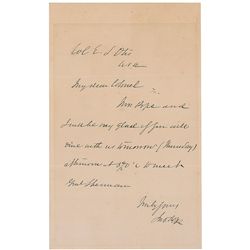 Col. E. S. Otis
USA
My dear Colonel
Mrs Pope and
I will be very glad if you will
dine with us tomorrow (Thursday)
afternoon at o'c to meet
Genl Sherman
Truly yours
Jno Pope